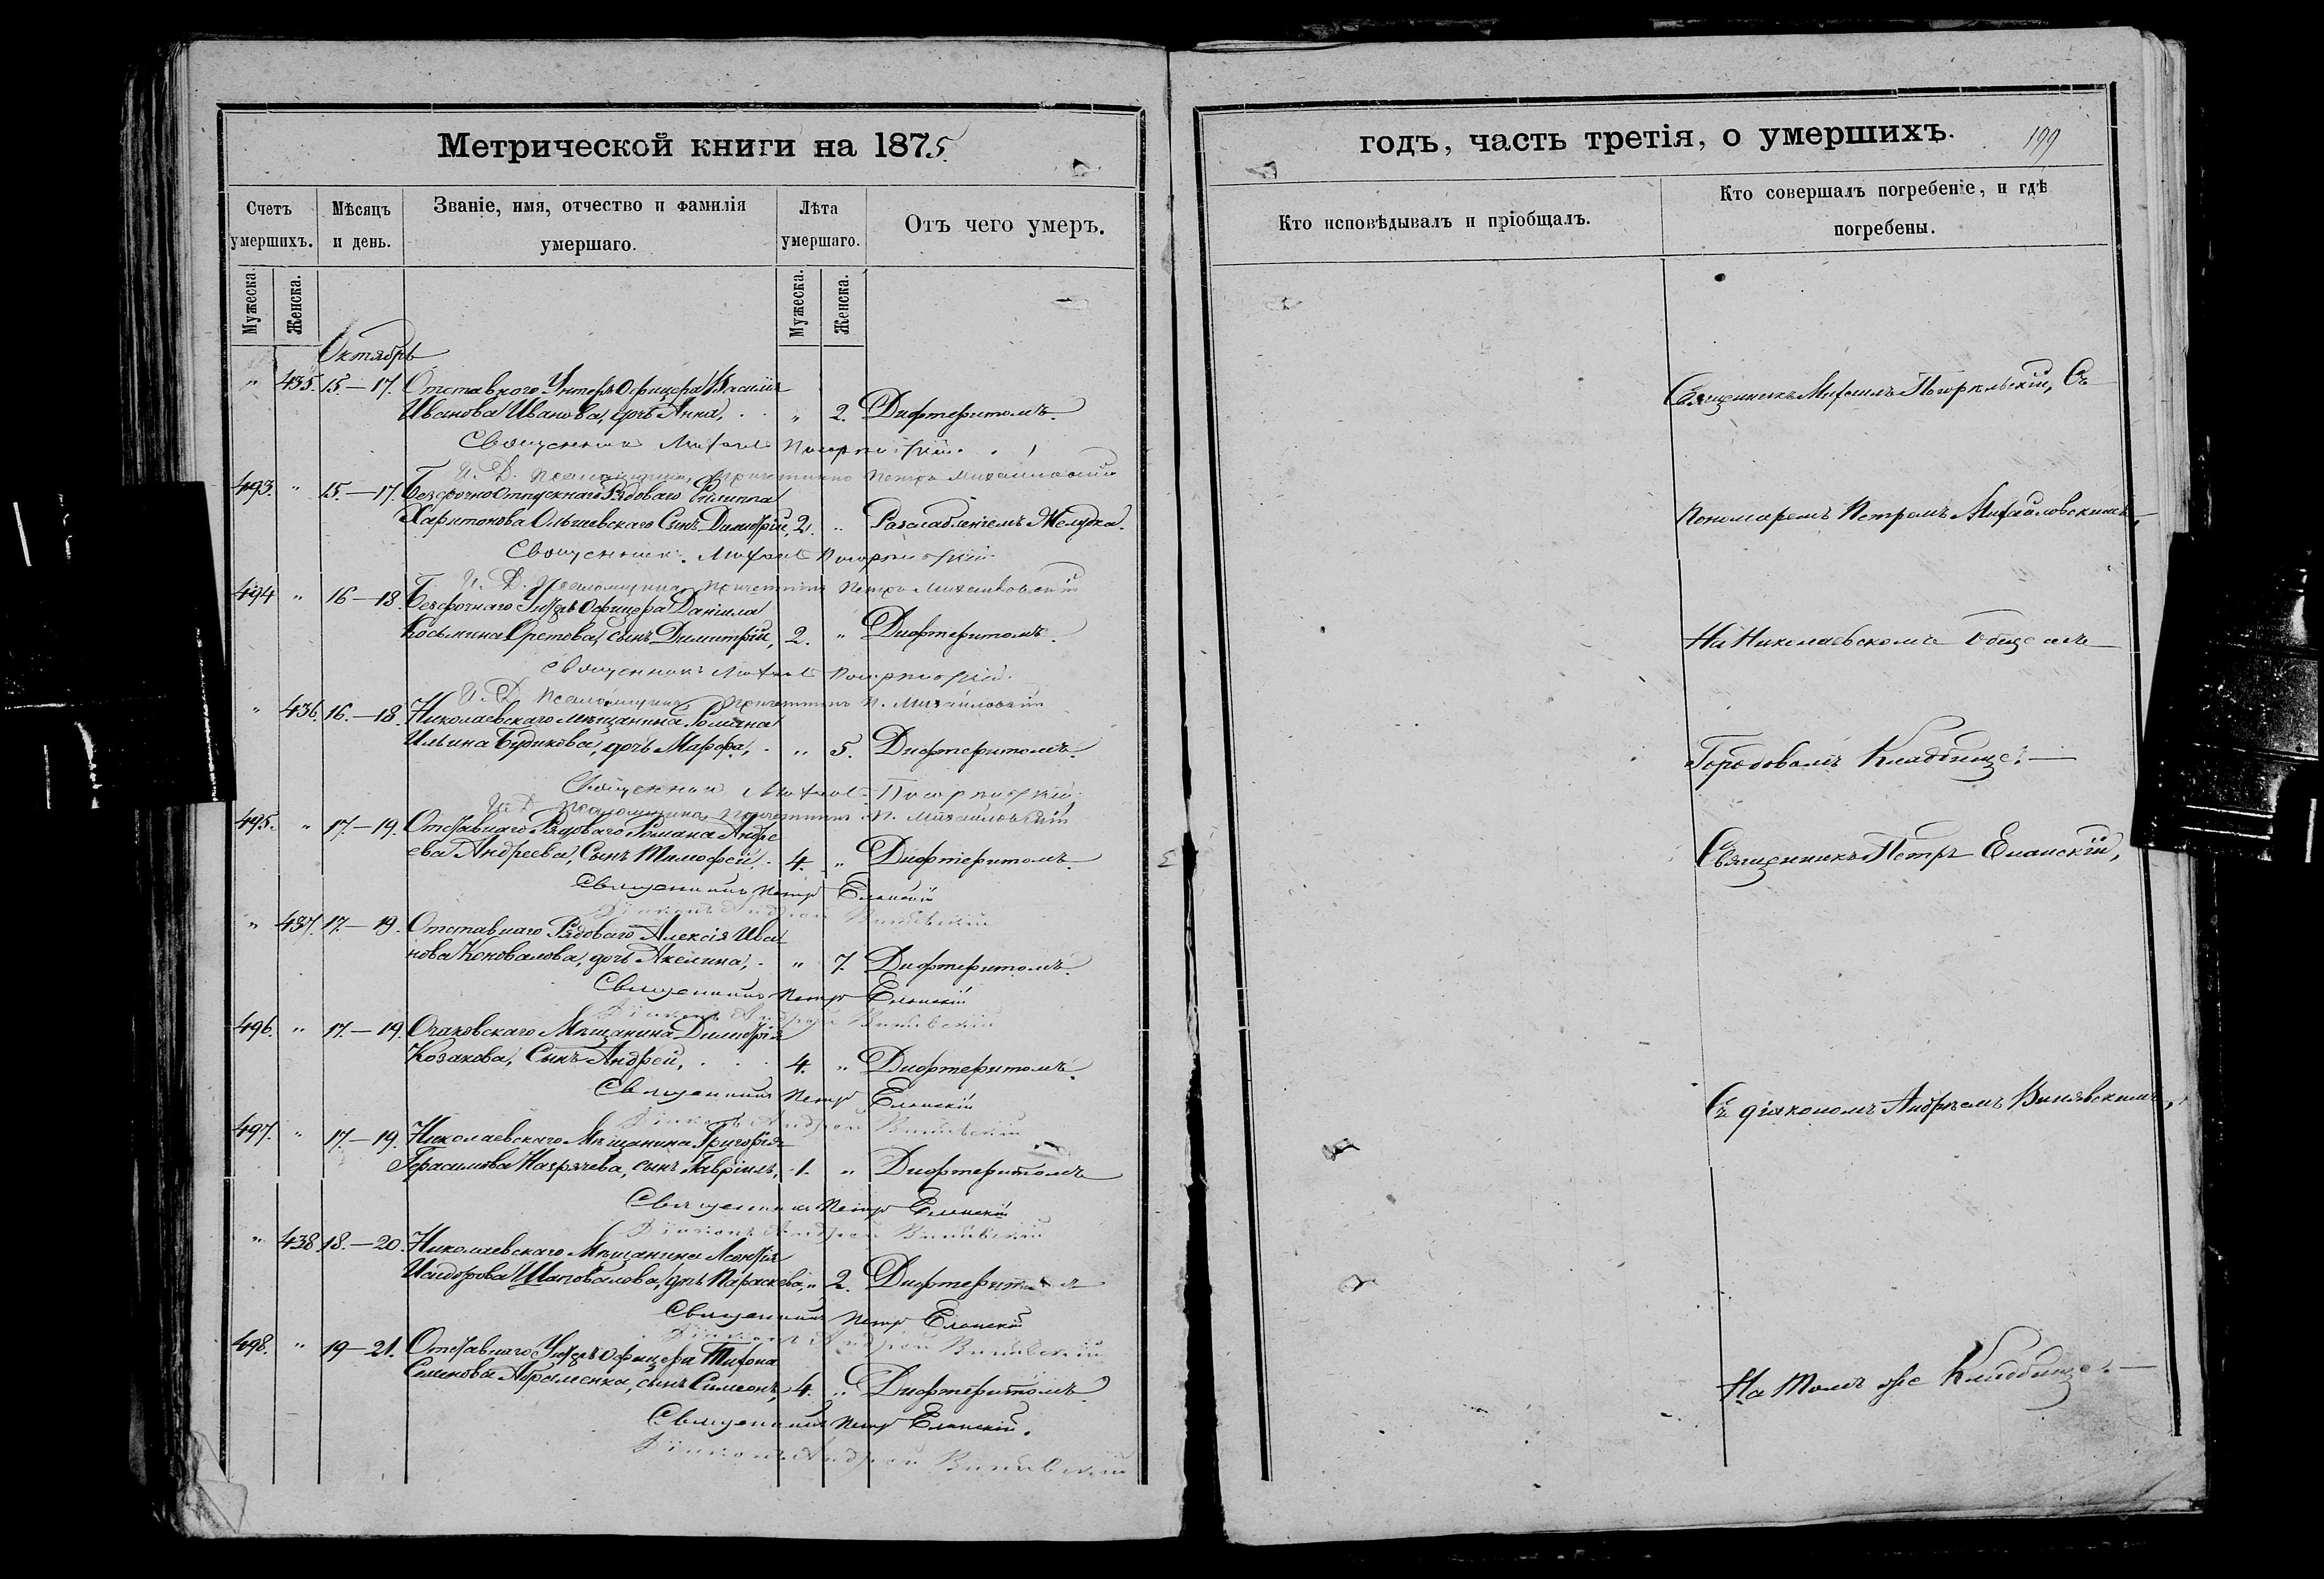 Метрической книги на 1875
Счетъ умершихъ.
Мѣсяцъ и день.
Званіе, имя, отчество и фамилія умершаго.
Лѣта умершаго.
Отъ чего умеръ.
Мужеска.
Женска.
Мужеска.
Женска.
Октябрь
" 435. 15–17. Отставного Унтеръ Офицера Василія
Иванова Иванова, дочь Анна, " 2. Дифтеритомъ.
Священникъ Михаилъ
И. Д. Псаломщика, причетникъ Петръ Михайловскій
493. " 15.–17. Безсрочно Отпускнаго Рядоваго Филиппа
Харитонова Ольшевскаго Сынъ Димитрій, 2. " Разслабленіемъ Желудка.
Священникъ Михаилъ
И. Д. Псаломщика, причетникъ Петръ Михайловскій
494 " 16–18. Безсрочнаго Унтеръ Офицера Даніила
Косьмина сынъ Димитрій, 2. " Дифтеритомъ.
Священникъ Михаилъ
И. Д. Псаломщика, причетникъ П. Михайловскій
" 436. 16.–18. Николаевскаго мѣщанина Романа
Ильина дочь Марфа, " 5. Дифтеритомъ.
Священникъ Михаилъ
И. Д. Псаломщика, причетникъ П. Михайловскій
495. " 17.–19. Отставнаго Рядоваго Романа Андре
ева Андреева, Сынъ Тимофей. 4. " Дифтеритомъ.
Священникъ Петръ Еланскій
Діаконъ Андрей
" 437. 17.–19. Отставнаго Рядоваго Алексія Ива
нова Коновалова, дочь Акелина, " 7. Дифтеритомъ.
Священникъ Петръ Еланскій
Діаконъ Андрей
496. " 17.–19. Очаковскаго Мѣщанина Димитрія
Козакова, Сынъ Андрей, 4. " Дифтеритомъ.
Священникъ Петръ Еланскій
Діаконъ Андрей
497. " 17.–19. Николаевскаго Мѣщанина Григорія
Герасимова сынъ Гавріилъ, 1. " Дифтеритомъ
Священникъ Петръ Еланскій
Діаконъ Андрей
" 438. 18.–20. Николаевскаго Мѣщанина
Исидорова Шаповалова, дочь Параскева, " 2. Дифтеритомъ
Священникъ Петръ Еланскій
Діаконъ Андрей
498. " 19–21. Отставнаго Унтеръ Офицера Тихона
Семенова Абраменка, сынъ Симеонъ, 4. " Дифтеритомъ.
Священникъ Петръ Еланскій.
Діаконъ Андрей
годъ, часть третія, о умершихъ.
199
Кто исповѣдывалъ и пріобщалъ.
Кто совершалъ погребеніе, и гдѣ погребены.
Священникъ Михаилъ Съ
Пономаремъ Петромъ Михайловскимъ,
На Николаевскомъ Общемъ
Городовомъ Кладбище.
Священникъ Петръ Еланскій,
Съ діакономъ Андреемъ
На томъ же Кладбище.